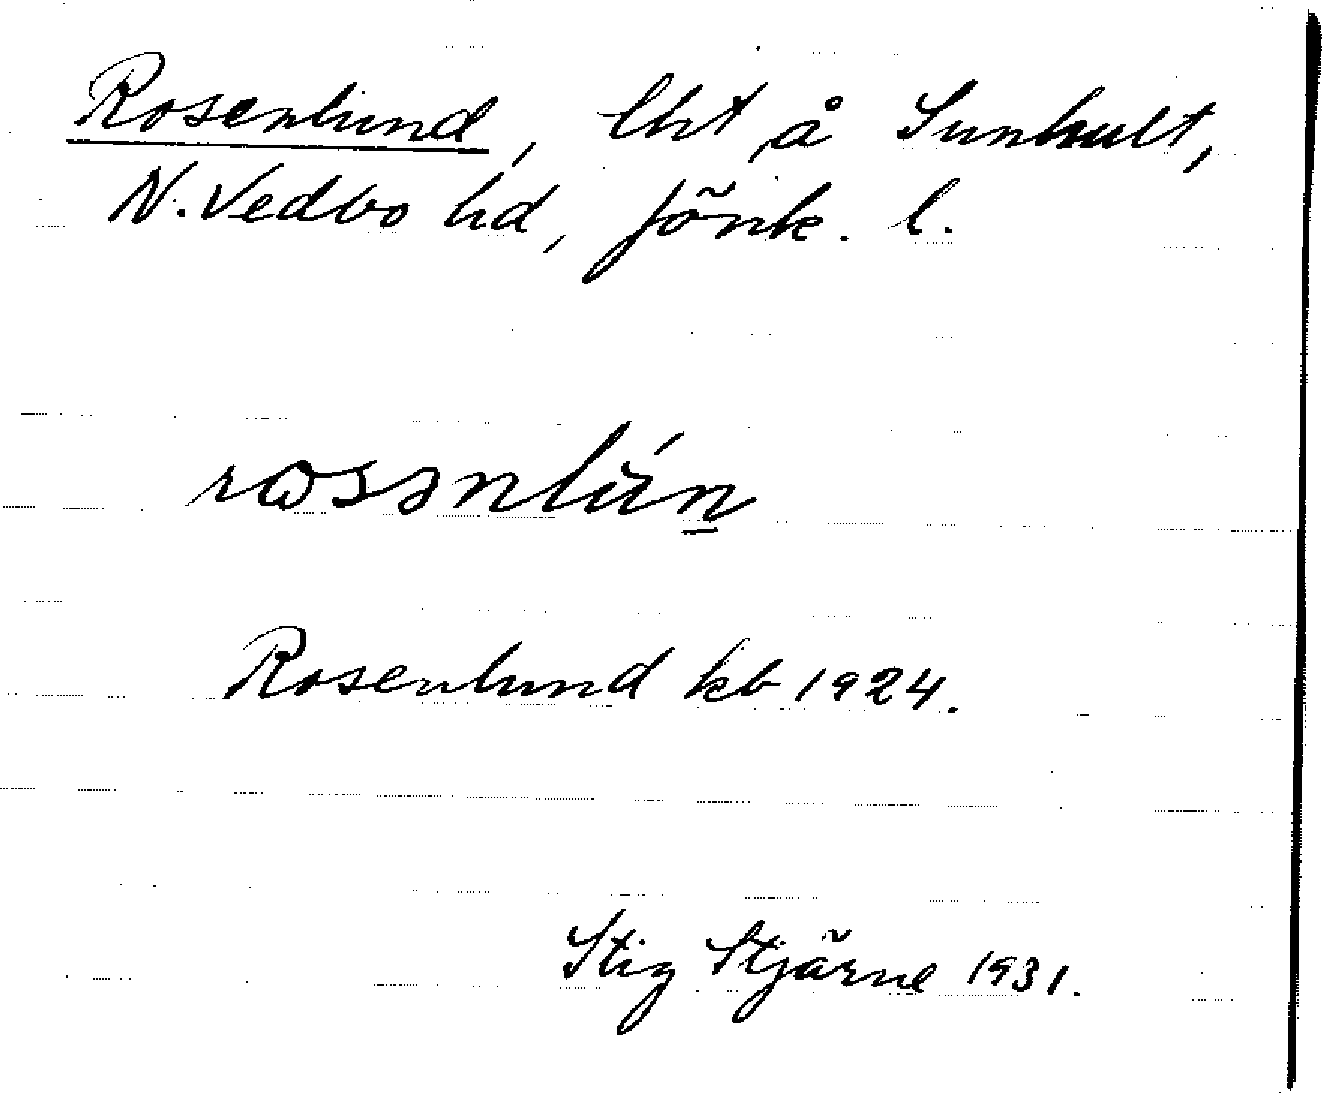 Rosenlund, lht å Sunhult,
N. Vedbo hd, Jönk. l.
rosənlún
Rosenlund kb 1924.
Stig Stjärne 1931.